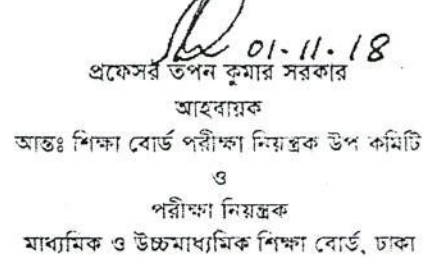 01-11-18
প্রফেসর তপন কুমার সরকার
আহবায়ক
আন্তঃ শিক্ষা বোর্ড পরীক্ষা নিয়ন্ত্রক উপ কমিটি
ও
পরীক্ষা নিয়ন্ত্রক
মাধ্যমিক ও উচ্চমাধ্যমিক শিক্ষা বোর্ড, ঢাকা